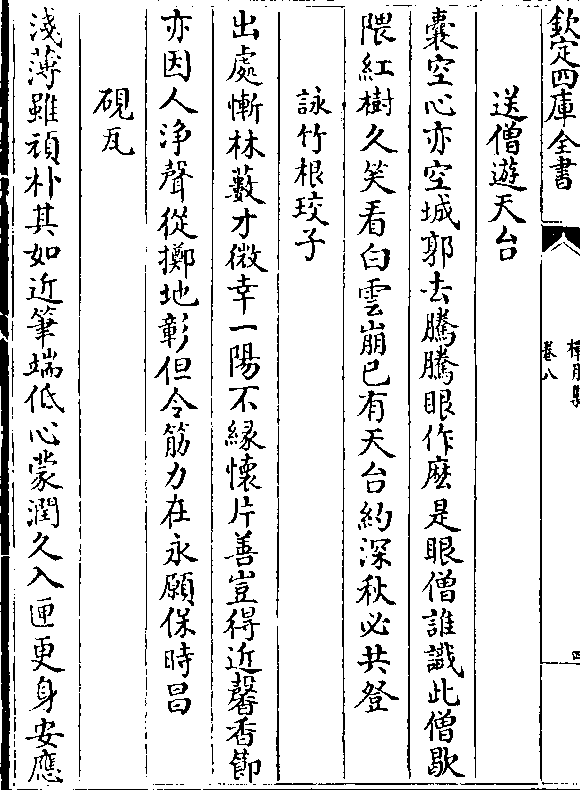 欽定四庫全書
卷八
四
送僧遊天台
囊空心亦空城郭去騰騰眼作麽是眼僧誰識此僧歇
隈紅樹久笑看白雲崩已有天台約深秋必共登
詠竹根珓子
出處慚林藪才微幸一陽不緣懷片善豈得近馨香節
亦因人淨聲從擲地彰但令筋力在永願保時昌
硯瓦
淺薄雖頑朴其如近筆端低心蒙潤久入匣更身安應